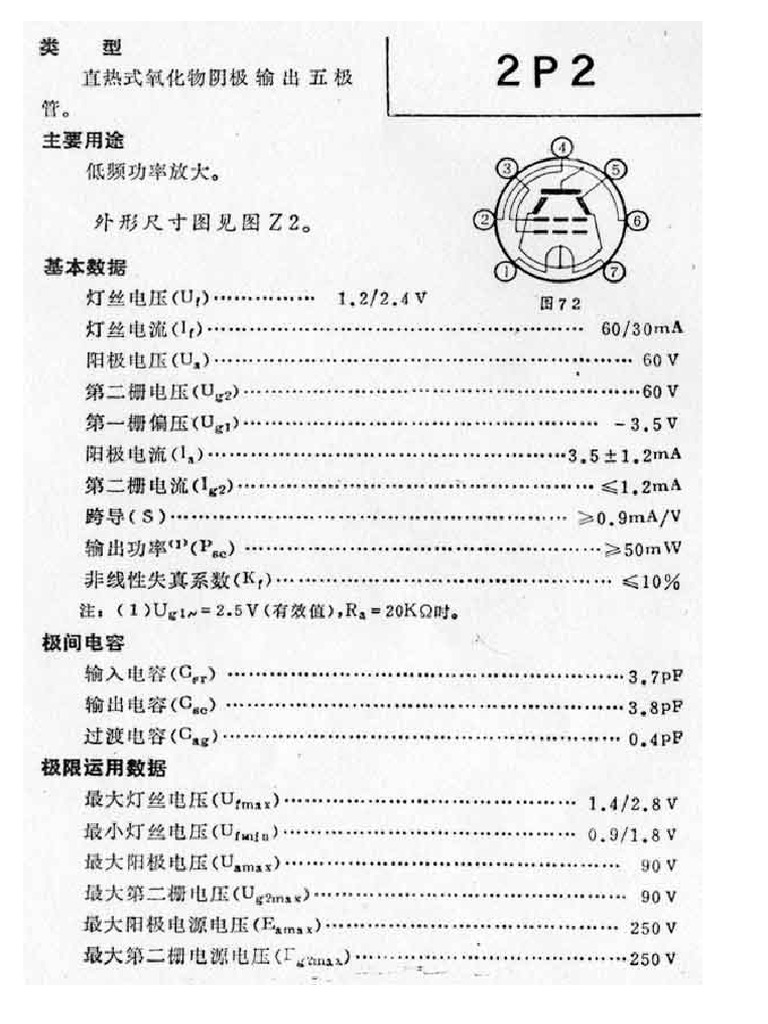 类 型
2P2
直热式氧化物阴极输出五极
管。
主要用途
低频功率放大。
外形尺寸图见图Z2。
① ② ③ ④ ⑤ ⑥ ⑦
图72
基本数据
灯丝电压(Uf)…………… 1.2/2.4V
灯丝电流(If)…………………………………… 60/30mA
阳极电压(Ua)…………………………………… 60V
第二栅电压(Ug2)……………………………………60V
第一栅偏压(Ug1)…………………………………… -3.5V
阳极电流(Ia)……………………………………3.5±1.2mA
第二栅电流(Ig2)…………………………………… ≤1.2mA
跨导(S)…………………………………… ≥0.9mA/V
输出功率(1)(Psc) ……………………………………≥50mW
非线性失真系数(Kf)…………………………………… ≤10%
注:(1)Ug1~=2.5V(有效值),Ra=20KΩ时。
极间电容
输入电容(Csr) ……………………………………3.7pF
输出电容(Csc) ……………………………………3.8pF
过渡电容(Cag)…………………………………… 0.4pF
极限运用数据
最大灯丝电压(Ufmax)…………………………………… 1.4/2.8V
最小灯丝电压(Ufmin)…………………………………… 0.9/1.8V
最大阳极电压(Uamax)…………………………………… 90V
最大第二栅电压(Ug2max)…………………………………… 90V
最大阳极电源电压(Eamax)…………………………………… 250V
最大第二栅电源电压(Eg2max)……………………………………250V